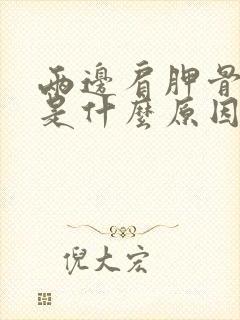 兩邊肩胛骨
是什麼原因
倪大宏